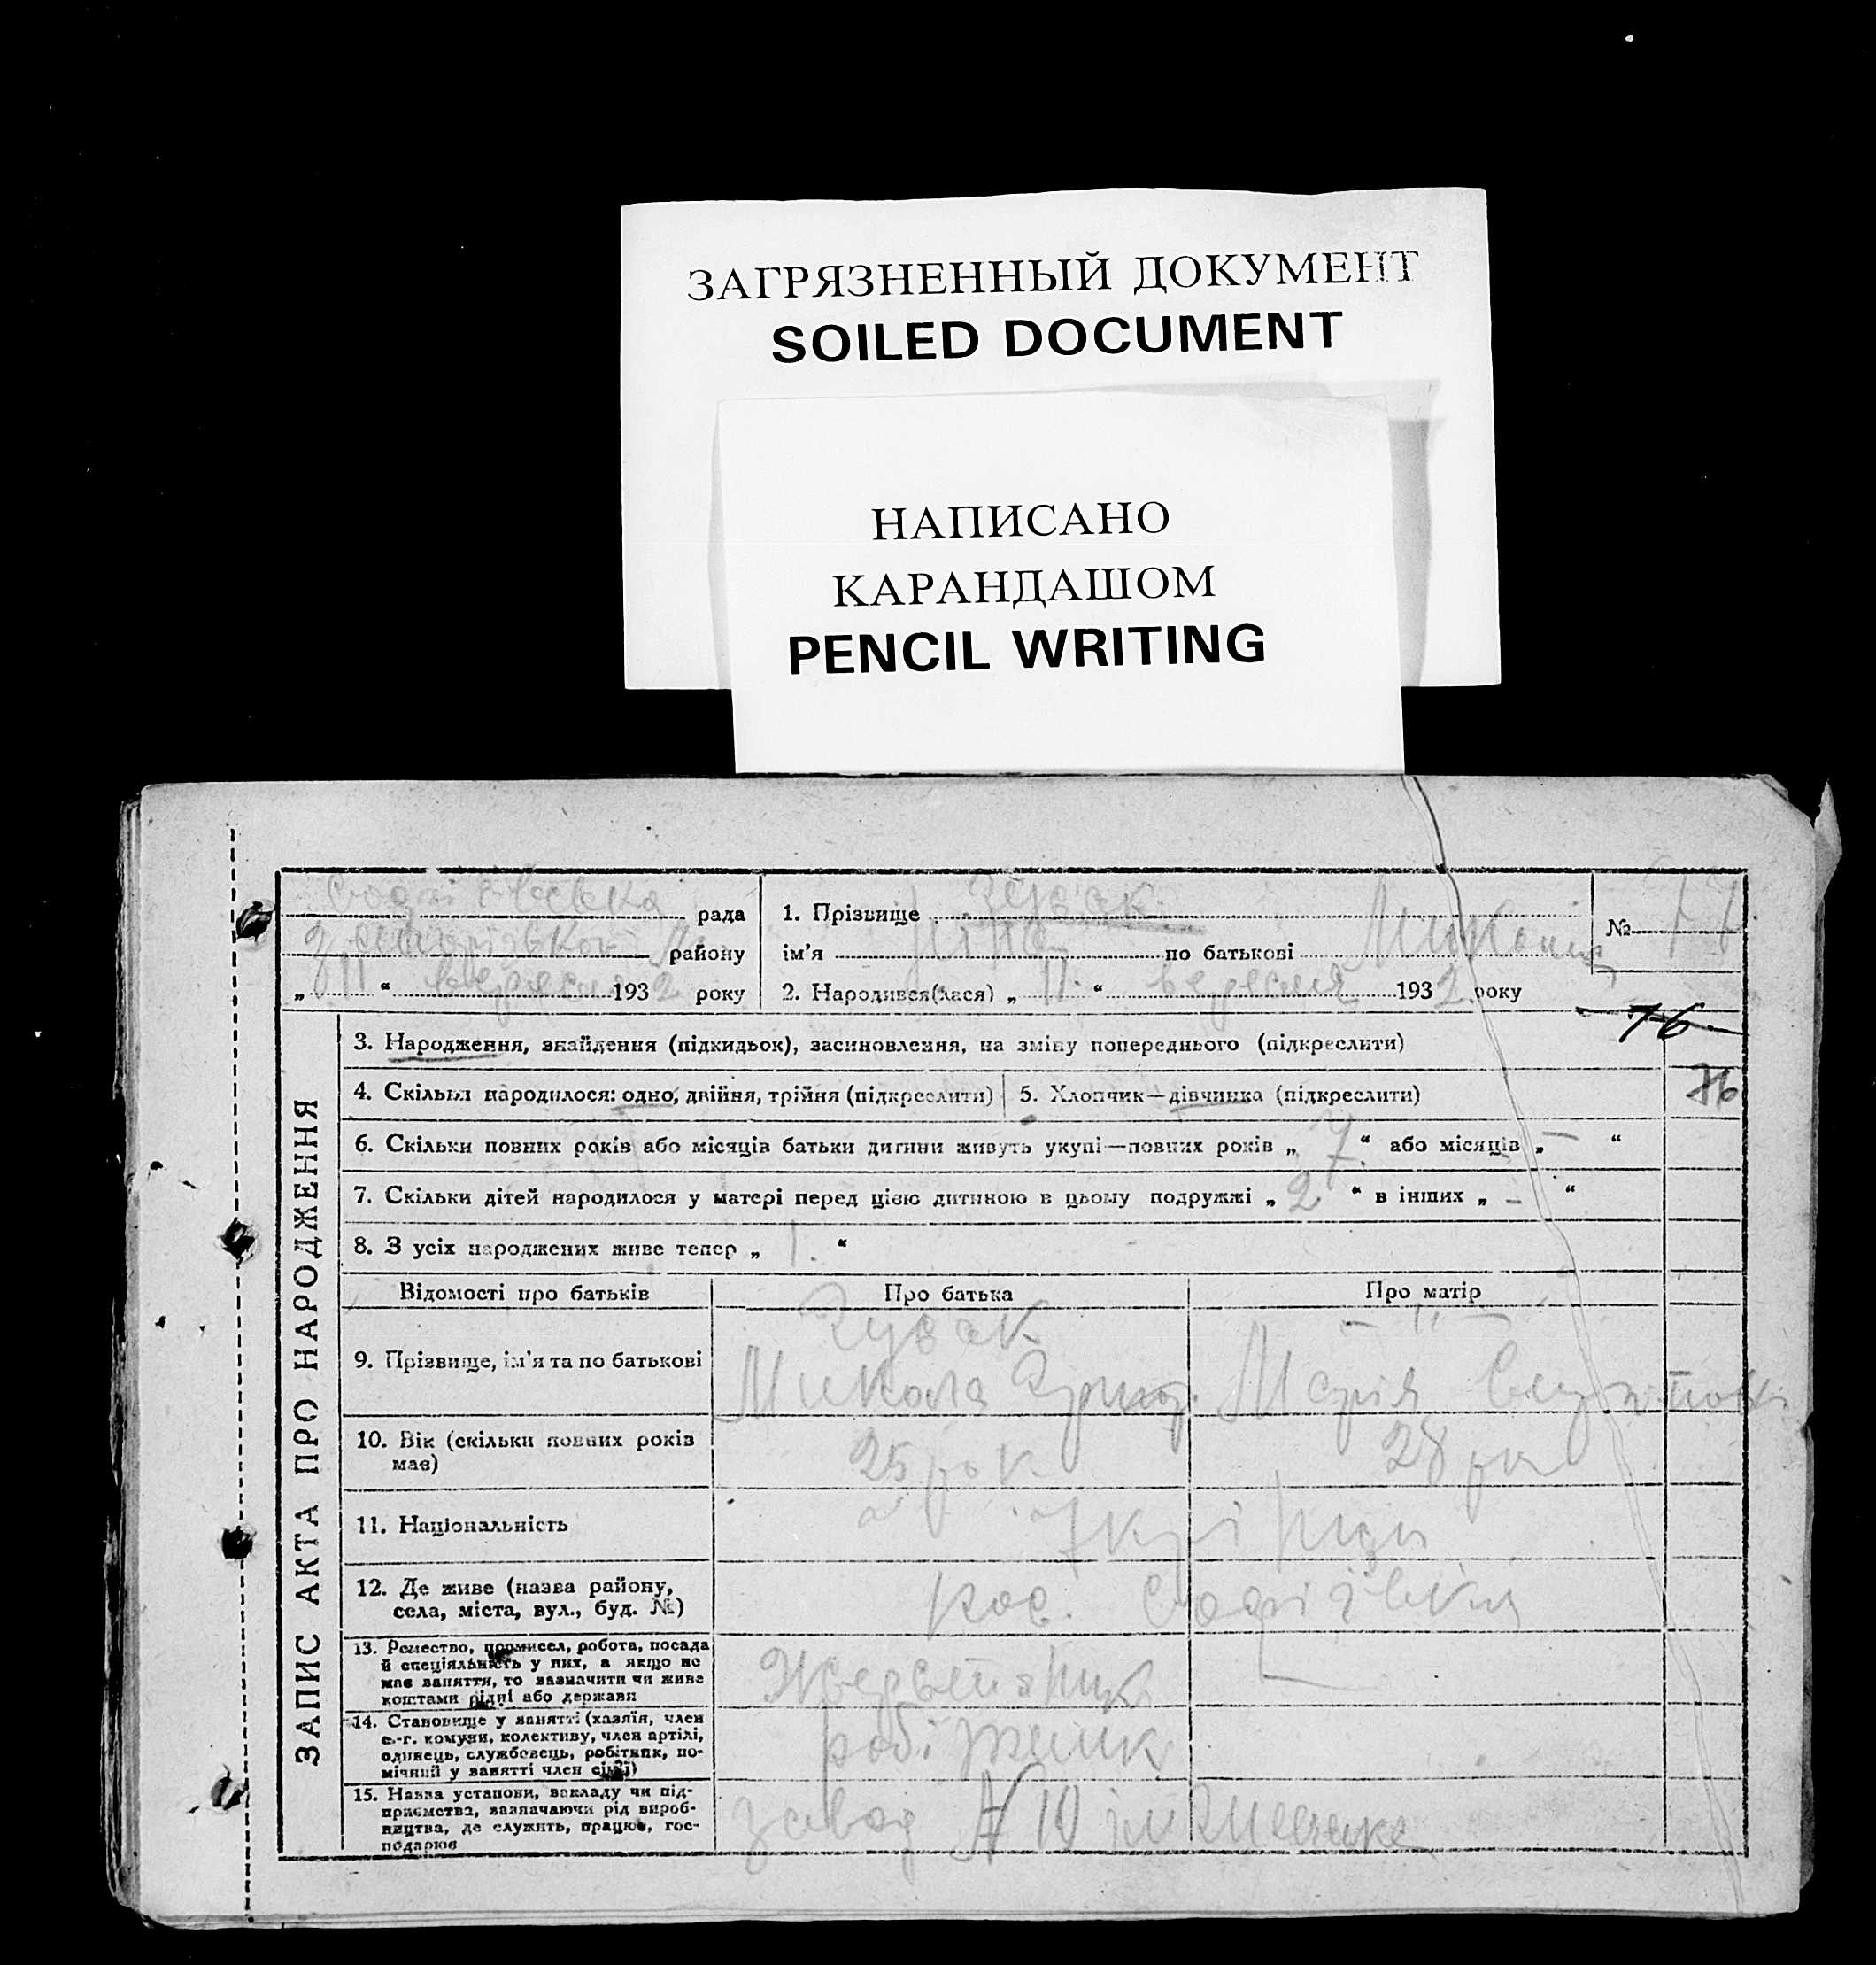 ЗАГРЯЗНЕННЫЙ ДОКУМЕНТ
SOILED DOCUMENT
НАПИСАНО
КАРАНДАШОМ
PENCIL WRITING
рада
району
„ 11 “ вересня 1932 року
1. Прізвище
ім'я по батькові
2. Народився(лася) „ 11 “ вересня 1932 року
№ 77
76
76
ЗАПИС АКТА ПРО НАРОДЖЕННЯ
3. Народження, знайдення (підкидьок), засиновлення, на зміну попереднього (підкреслити)
4. Скільки народилося: одно, двійня, трійня (підкреслити)
5. Хлопчик—дівчинка (підкреслити)
6. Скільки повних років або місяців батьки дитини живуть укупі—повних років „ 7 “ або місяців „ — “
7. Скільки дітей народилося у матері перед цією дитиною в цьому подружжі „ 2 “ в інших „ — “
8. З усіх народжених живе тепер „ 1. “
Відомості про батьків
Про батька
Про матір
9. Прізвище, ім'я та по батькові
Микола
— " —
Марія
10. Вік (скільки повних років
має)
25 рок.
28 рок
11. Національність
12. Де живе (назва району,
села, міста, вул., буд. №)
Софіївка
13. Ремество, промисел, робота, посада
й спеціяльність у них, а якщо не
має заняття, то зазначити чи живе
коштами рідні або держави
14. Становище у занятті (хазяїн, член
с.-г. комуни, колективу, член артілі,
одинець, службовець, робітник, по-
мічний у занятті член сім'ї)
робітник
15. Назва установи, закладу чи під-
приємства, зазначаючи рід вироб-
ництва, де служить, працює, гос-
подарює
завод